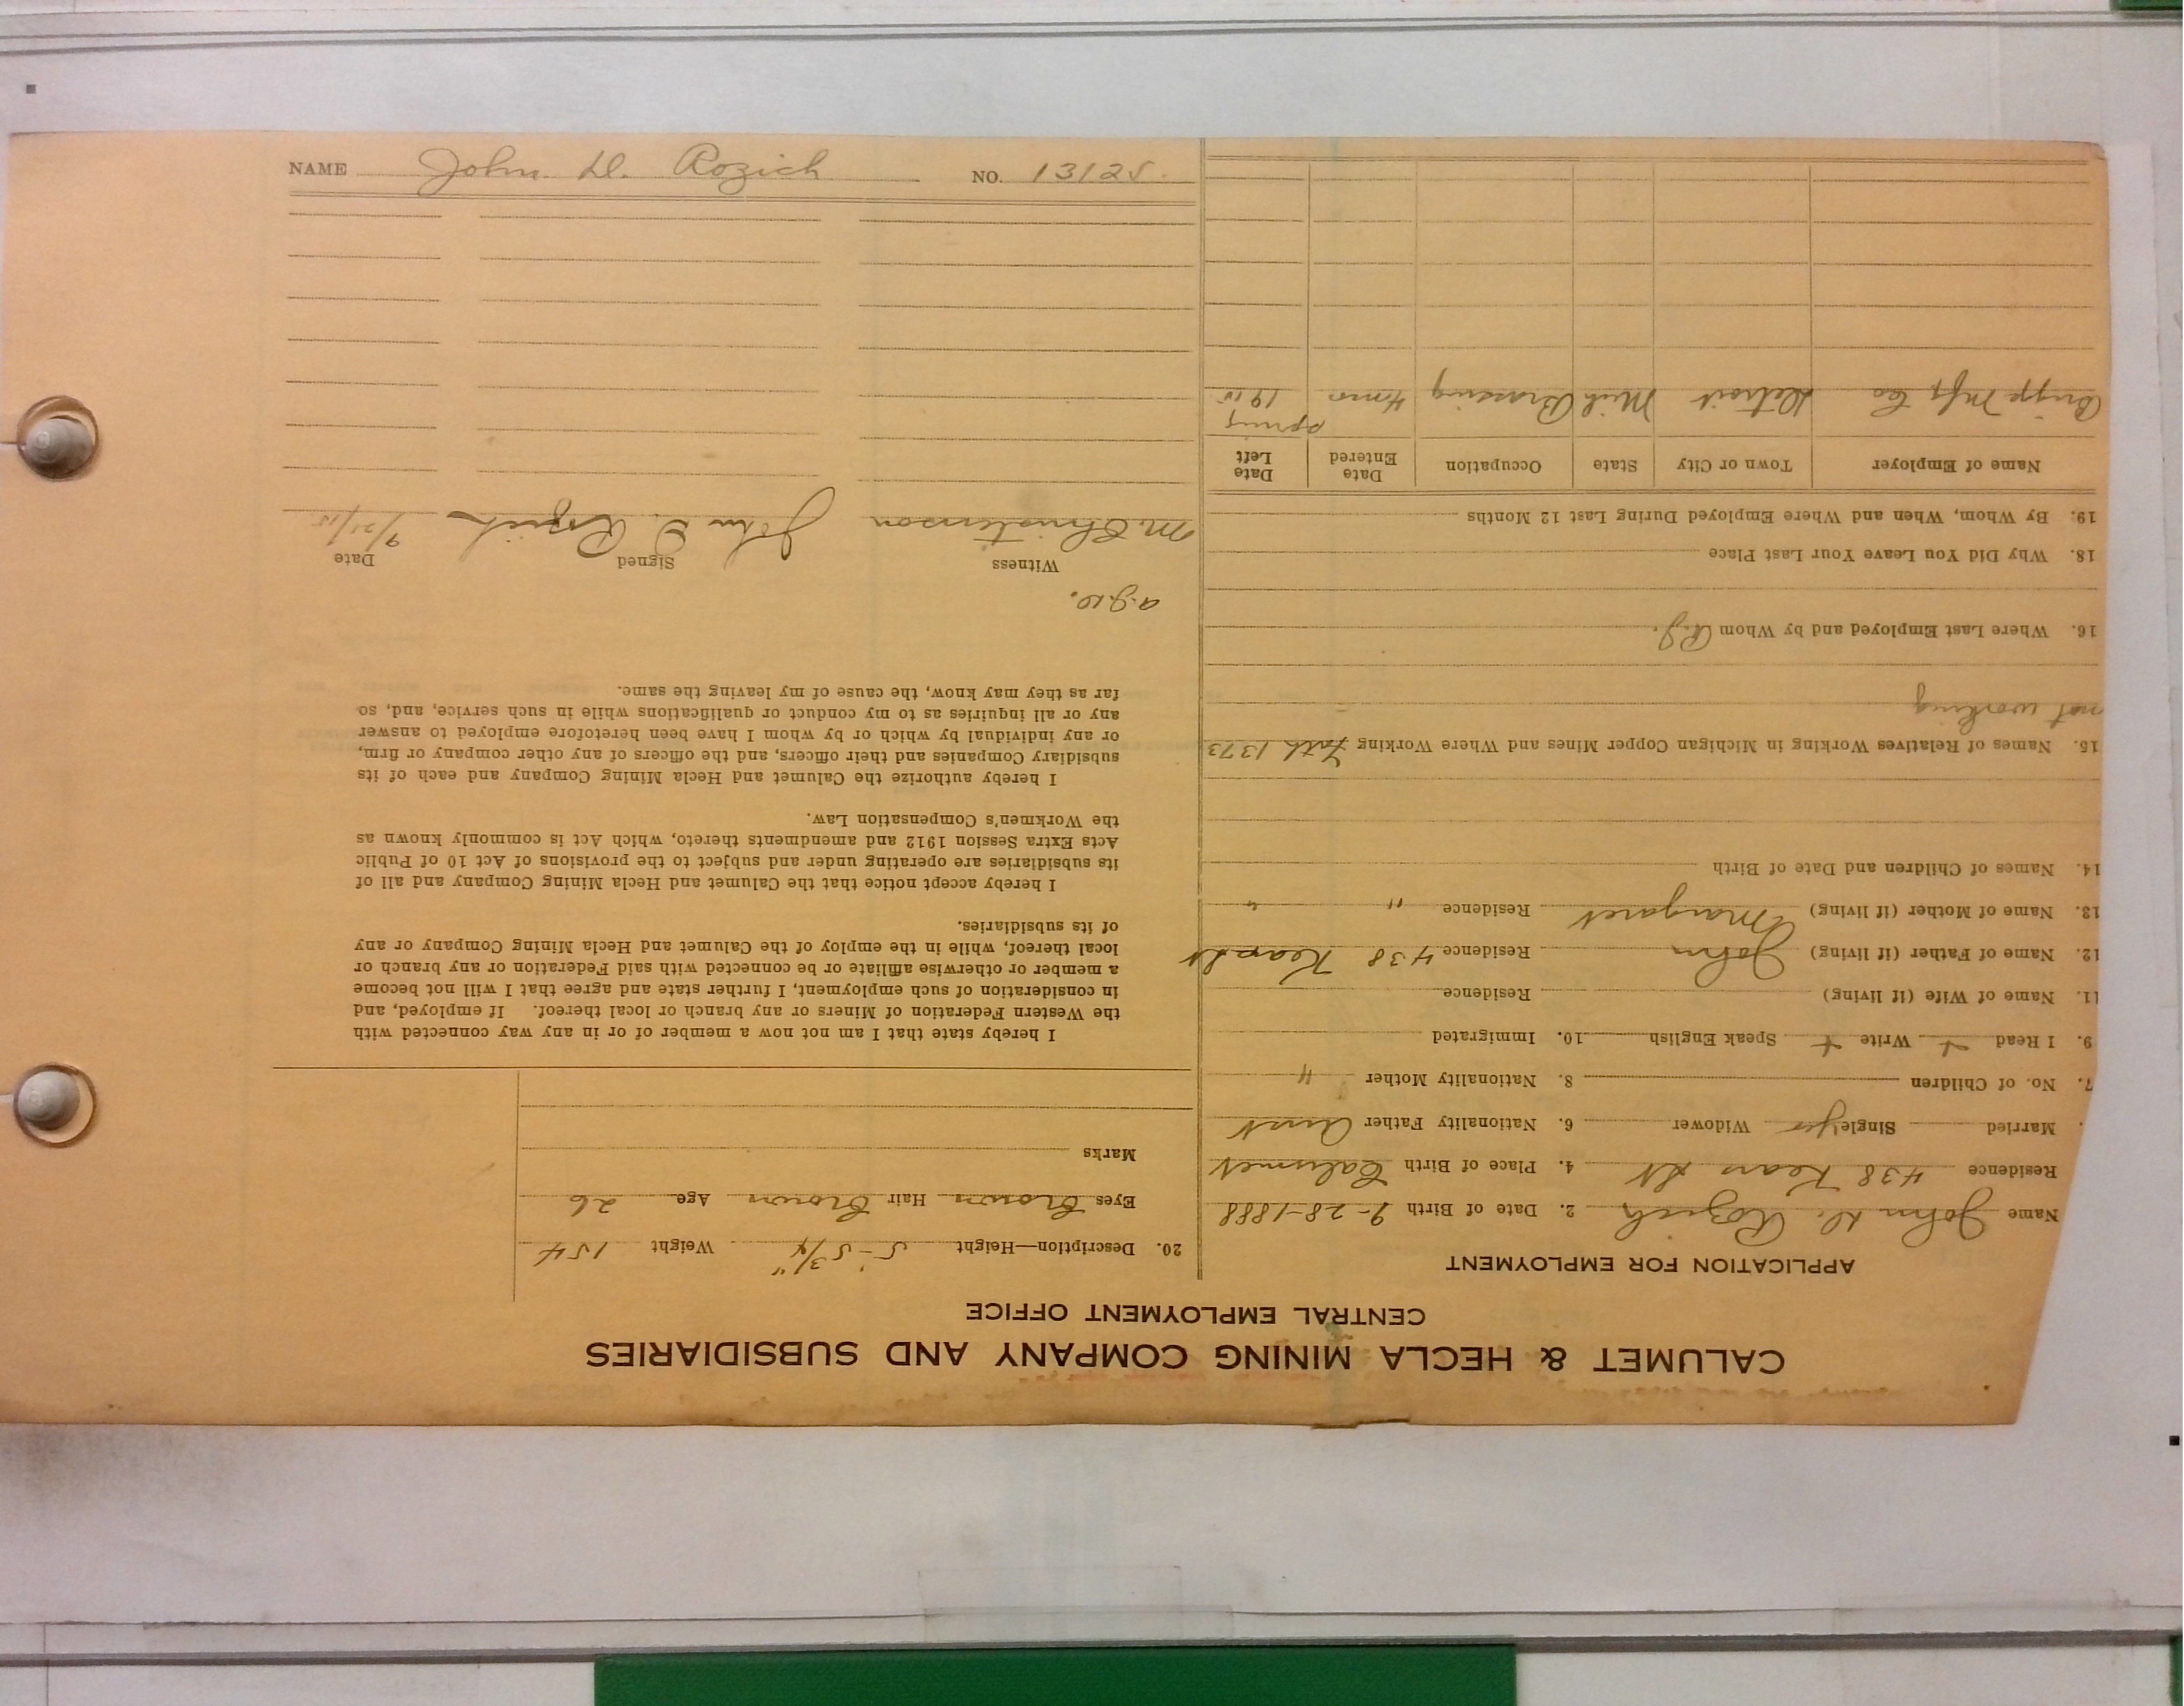 NAME John D. Rozich NO. 13125
CALUMET & HECLA MINING COMPANY AND SUBSIDIARIES
CENTRAL EMPLOYMENT OFFICE
APPLICATION FOR EMPLOYMENT
Name John D. Rozich 2. Date of Birth 9-28-1888
Residence 438 Kears St 4. Place of Birth Calumet
Married Single yes Widower 6. Nationality Father Aust
7. No. of Children 8. Nationality Mother "
9. I Read + Write + Speak English 10. Immigrated
11. Name of Wife (if living) Residence
12. Name of Father (if living) John Residence 438 Kears St
13. Name of Mother (if living) Margaret Residence " "
14. Names of Children and Date of Birth
15. Names of Relatives Working in Michigan Copper Mines and Where Working Fath 1373
not working
16. Where Last Employed and by Whom
18. Why Did You Leave Your Last Place
19. By Whom, When and Where Employed During Last 12 Months
Name of Employer Town or City State Occupation Date Entered Date Left
Briggs Mfg Co Detroit Mich 4 mos spring 1915
20. Description—Height 5'-5 3/4" Weight 154
Eyes Brown Hair Brown Age 26
Marks
I hereby state that I am not now a member of or in any way connected with
the Western Federation of Miners or any branch or local thereof. If employed, and
in consideration of such employment, I further state and agree that I will not become
a member or otherwise affiliate or be connected with said Federation or any branch or
local thereof, while in the employ of the Calumet and Hecla Mining Company or any
of its subsidiaries.
I hereby accept notice that the Calumet and Hecla Mining Company and all of
its subsidiaries are operating under and subject to the provisions of Act 10 of Public
Acts Extra Session 1912 and amendments thereto, which Act is commonly known as
the Workmen's Compensation Law.
I hereby authorize the Calumet and Hecla Mining Company and each of its
subsidiary Companies and their officers, and the officers of any other company or firm,
or any individual by which or by whom I have been heretofore employed to answer
any or all inquiries as to my conduct or qualifications while in such service, and, so
far as they may know, the cause of my leaving the same.
Witness Signed Date
M. Christenson John D. Rozich 9/21/15